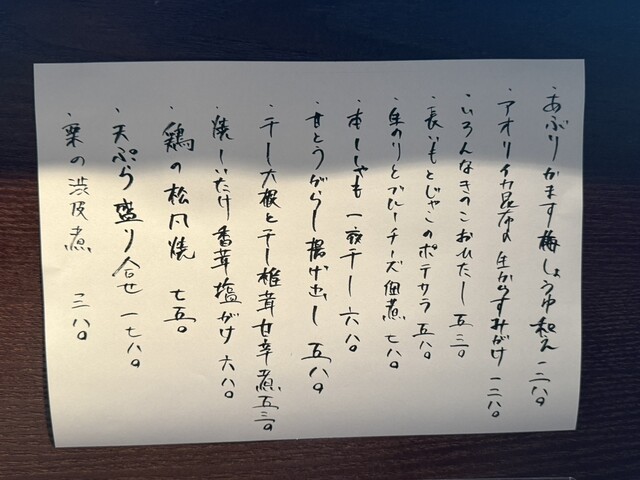 ・あぶりかます梅しょうゆ和え 一二八〇
・アオリイカ昆布〆 生からすみがけ 一二八〇
・いろんなきのこおひたし 五三〇
・長いもとじゃこのポテサラ 五八〇
・生のりとブルーチーズ佃煮 七八〇
・本ししゃも 一夜干し 六八〇
・甘とうがらし揚げ出し 五八〇
・干し大根と干し椎茸甘辛煮 五三〇
・焼しいたけ香茸塩がけ 六八〇
・鶏の松風焼 七五〇
・天ぷら盛り合せ 一七八〇
・栗の渋皮煮 三八〇